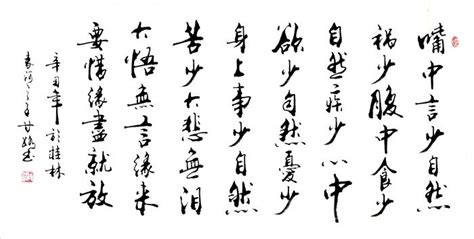 嘴中言少自然
祸少腹中食少
自然疾少心中
欲少自然憂少
身上事少自然
苦少大悲無泪
大悟無言缘来
要惜缘盡就放
辛丑年於桂林